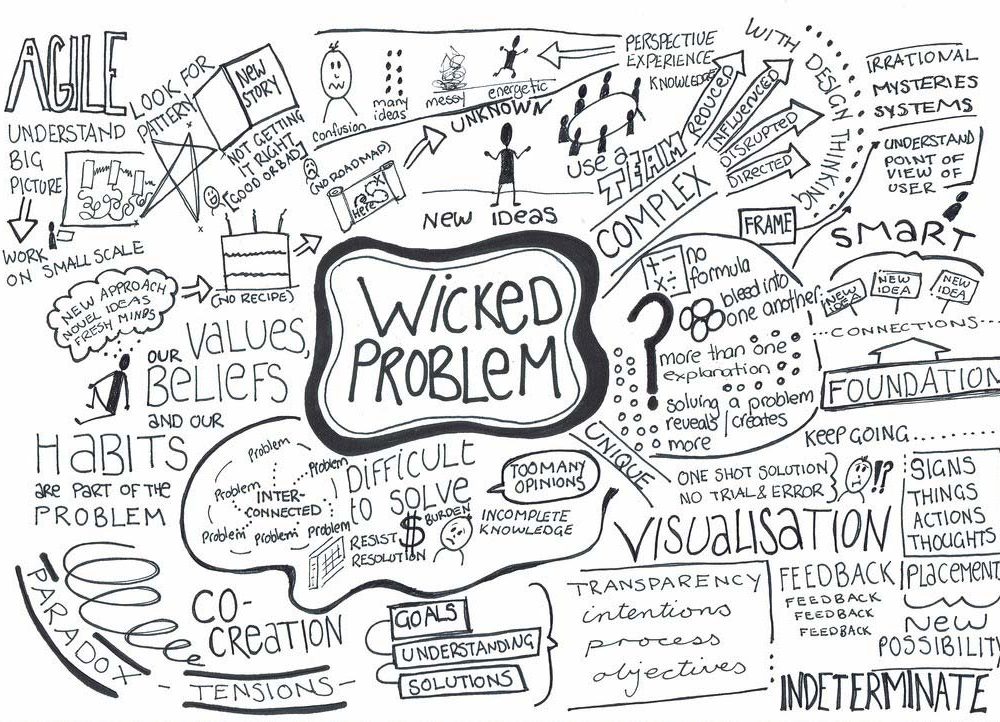 AGILE
UNDERSTAND
BIG
PICTURE
WORK
ON SMALL SCALE
LOOK FOR
PATTERNS
NEW
STORY
NOT GETTING
IT RIGHT
(GOOD OR BAD)
confusion
many
ideas
messy
energetic
UNKNOWN
(NO ROADMAP)
Here
NEW IDEAS
PERSPECTIVE
EXPERIENCE
KNOWLEDGE
USE a
TEAM
COMPLEX
REDUCED
INFLUENCED
DISRUPTED
DIRECTED
WITH DESIGN THINKING
IRRATIONAL
MYSTERIES
SYSTEMS
UNDERSTAND
POINT OF
VIEW OF
USER
FRAME
SMART
NEW
IDEA
NEW
IDEA
NEW
IDEA
CONNECTIONS
FOUNDATION
KEEP GOING.........
(NO RECIPE)
NEW APPROACH
NOVEL IDEAS
FRESH MINDS
OUR VALUES,
BELIEFS
AND OUR
HABITS
ARE PART OF THE
PROBLEM
WICKED
PROBLEM
+ -
x ÷
no
formula
?
bleed into
one another
more than one
explanation
solving a problem
reveals / creates
more
UNIQUE
ONE SHOT SOLUTION
NO TRIAL & ERROR
!?
Problem
Problem
Problem
INTER-
CONNECTED
Problem
Problem
Problem
DIFFICULT
to SOLVE
RESIST
RESOLUTION
$
BURDEN
TOO MANY
OPINIONS
INCOMPLETE
KNOWLEDGE
VISUALISATION
SIGNS
THINGS
ACTIONS
THOUGHTS
PLACEMENT
NEW
POSSIBILITY
FEEDBACK
FEEDBACK
FEEDBACK
FEEDBACK
INDETERMINATE
TRANSPARENCY
intentions
process
objectives
PARADOX
- TENSIONS -
CO-
CREATION
GOALS
UNDERSTANDING
SOLUTIONS